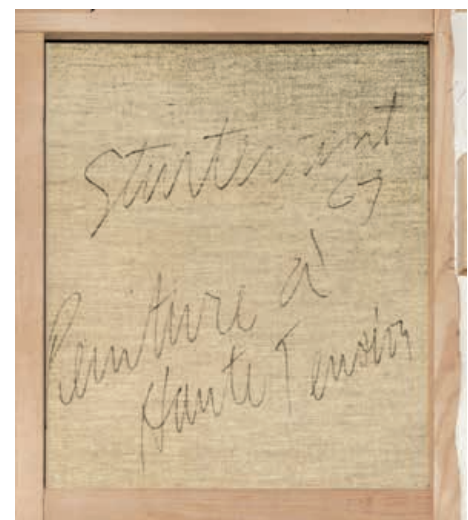 Sturtevant
67
Peinture à
Haute Tension